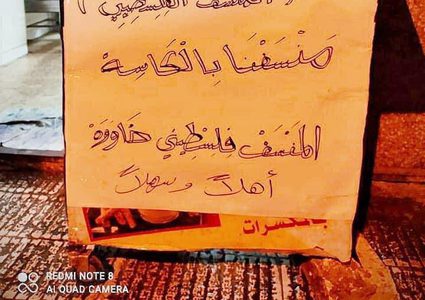 المنسف الفلسطيني
مَنْسَفْنَا بِالْكَاسِةْ
المَنْسَفْ فِلِسْطِيْنِي خَاوَوَةْ
أهلاً وسهلاً
REDMI NOTE 8
AI QUAD CAMERA